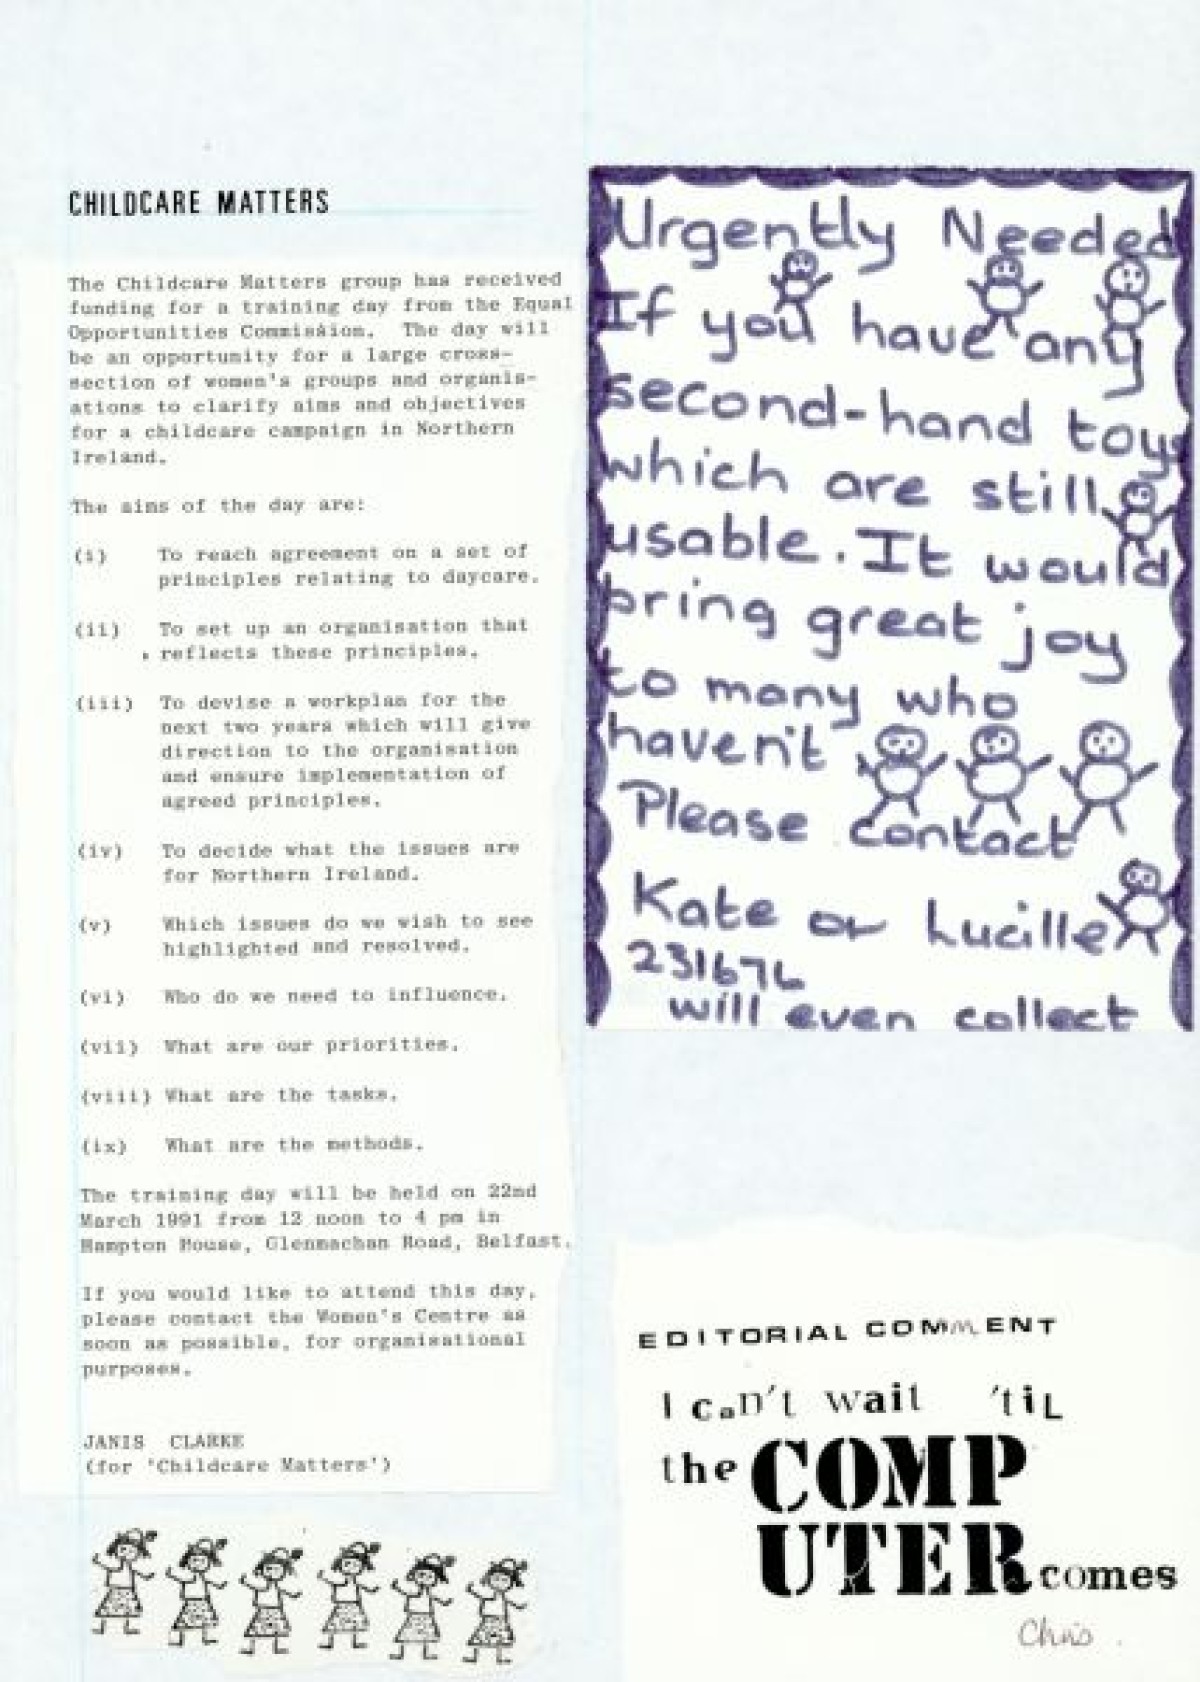 CHILDCARE MATTERS
The Childcare Matters group has received
funding for a training day from the Equal
Opportunities Commission. The day will
be an opportunity for a large cross-
section of women's groups and organis-
ations to clarify aims and objectives
for a childcare campaign in Northern
Ireland.
The aims of the day are:
(i) To reach agreement on a set of
principles relating to daycare.
(ii) To set up an organisation that
reflects these principles.
(iii) To devise a workplan for the
next two years which will give
direction to the organisation
and ensure implementation of
agreed principles.
(iv) To decide what the issues are
for Northern Ireland.
(v) Which issues do we wish to see
highlighted and resolved.
(vi) Who do we need to influence.
(vii) What are our priorities.
(viii) What are the tasks.
(ix) What are the methods.
The training day will be held on 22nd
March 1991 from 12 noon to 4 pm in
Hampton House, Glenmachan Road, Belfast.
If you would like to attend this day,
please contact the Women's Centre as
soon as possible, for organisational
purposes.
JANIS CLARKE
(for 'Childcare Matters')
Urgently Needed
If you have any
second-hand toys
which are still
usable. It would
bring great joy
to many who
haven't
Please contact
Kate or Lucille
231676
will even collect
EDITORIAL COMMENT
I can't wait 'til
the COMP
UTER comes
Chris.